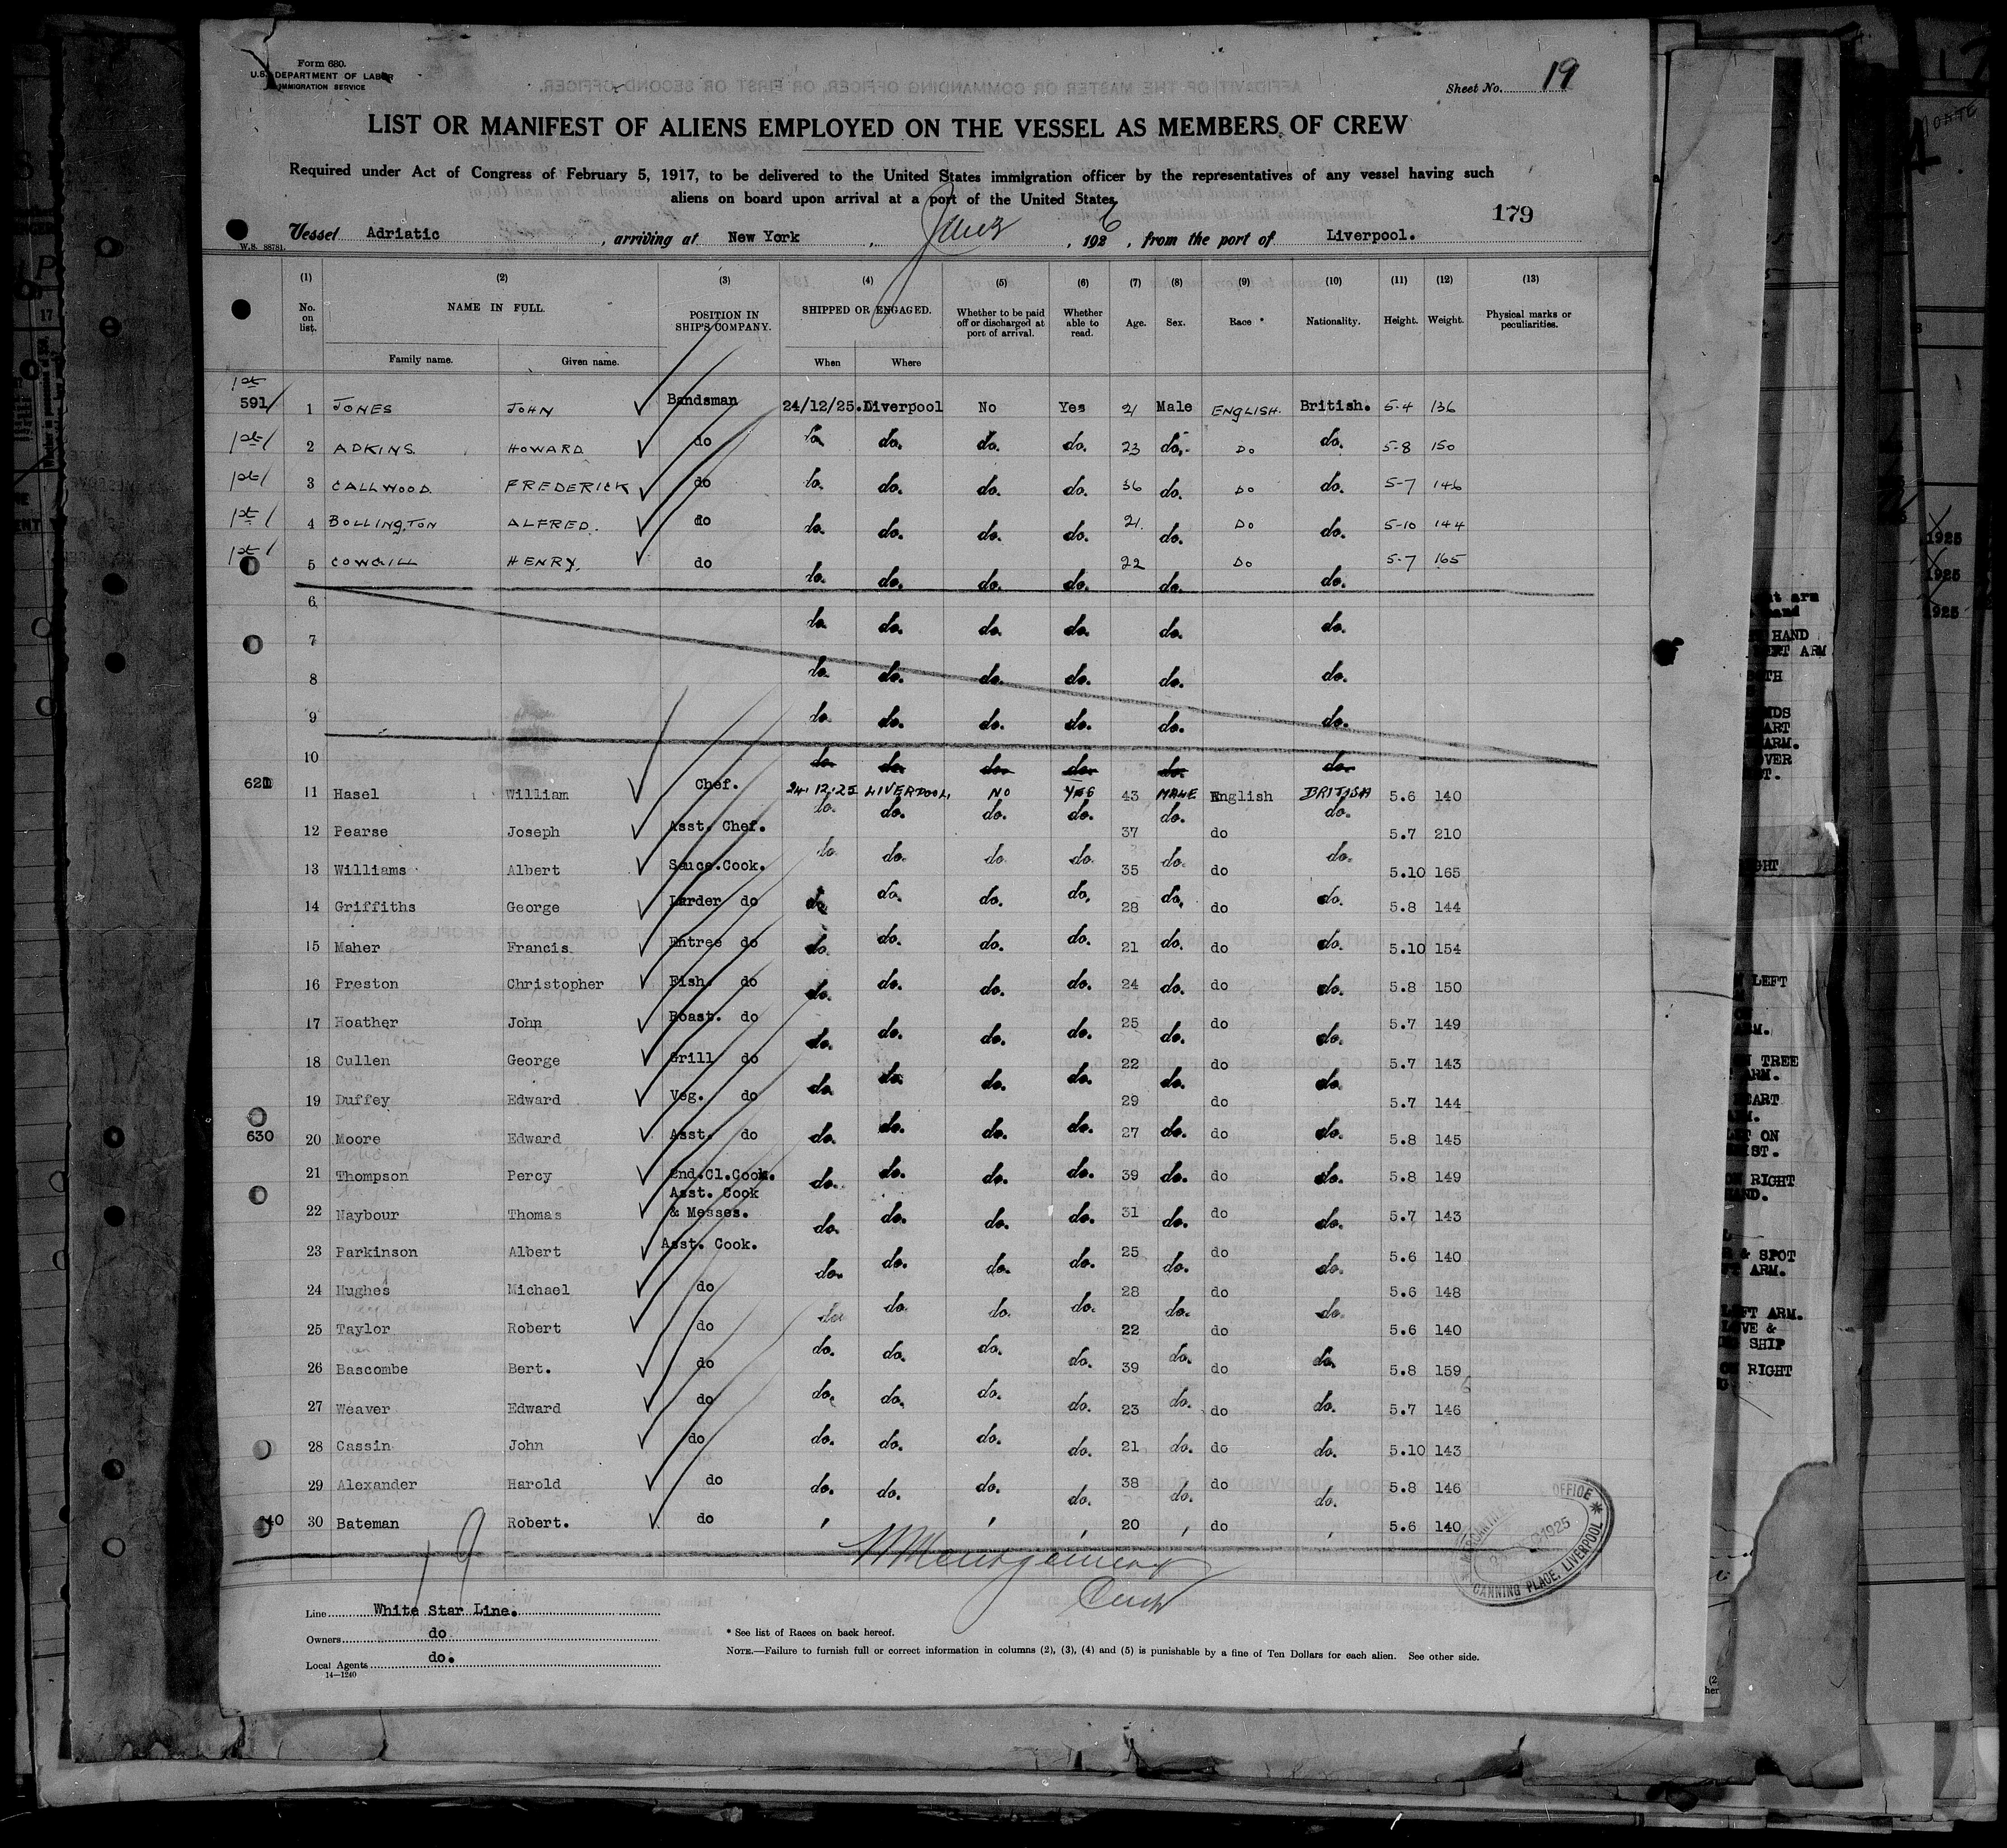 Form 680.
U.S. DEPARTMENT OF LABOR
IMMIGRATION SERVICE
Sheet No. 19
LIST OR MANIFEST OF ALIENS EMPLOYED ON THE VESSEL AS MEMBERS OF CREW
Required under Act of Congress of February 5, 1917, to be delivered to the United States immigration officer by the representatives of any vessel having such
aliens on board upon arrival at a port of the United States
179
W.S. 88781.
Vessel Adriatic, arriving at New York, 1926, from the port of Liverpool.
(1) (2) (3) (4) (5) (6) (7) (8) (9) (10) (11) (12) (13)
No. on list. NAME IN FULL. POSITION IN SHIP'S COMPANY. SHIPPED OR ENGAGED. Whether to be paid off or discharged at port of arrival. Whether able to read. Age. Sex. Race * Nationality. Height. Weight. Physical marks or peculiarities.
Family name. Given name. When Where
1st
591 1 JONES JOHN Bandsman 24/12/25. Liverpool No Yes 21 Male ENGLISH. British. 5-4 136
1st 2 ADKINS. HOWARD do do. do. do. do. 23 do. DO do. 5-8 150
1st 3 CALLWOOD. FREDERICK do do. do. do. do. 36 do. DO do. 5-7 146
1st 4 BOLLINGTON ALFRED. do do. do. do. do. 21. do. DO do. 5-10 144
1st 5 COWGILL HENRY. do do. do. do. do. 22 do. DO do. 5-7 165
6 do. do. do. do. do. do.
7 do. do. do. do. do. do.
8 do. do. do. do. do. do.
9 do. do. do. do. do. do.
10 do. do. do. do. do. do.
621 11 Hasel William Chef. 24.12.25 LIVERPOOL. NO YES 43 MALE English BRITISH 5.6 140
12 Pearse Joseph Asst. Chef. do. do. do. do. 37 do. do do. 5.7 210
13 Williams Albert Sauce.Cook. do. do. do. do. 35 do. do do. 5.10 165
14 Griffiths George Larder do do. do. do. do. 28 do. do do. 5.8 144
15 Maher Francis. Entree do do. do. do. do. 21 do. do do. 5.10 154
16 Preston Christopher Fish. do do. do. do. do. 24 do. do do. 5.8 150
17 Hoather John Roast. do do. do. do. do. 25 do. do do. 5.7 149
18 Cullen George Grill do do. do. do. do. 22 do. do do. 5.7 143
19 Duffey Edward Veg. do do. do. do. do. 29 do. do do. 5.7 144
630 20 Moore Edward Asst. do do. do. do. do. 27 do. do do. 5.8 145
21 Thompson Percy 2nd.Cl.Cook. do. do. do. do. 39 do. do do. 5.8 149
22 Naybour Thomas Asst. Cook & Messes. do. do. do. do. 31 do. do do. 5.7 143
23 Parkinson Albert Asst. Cook. do. do. do. do. 25 do. do do. 5.6 140
24 Hughes Michael do do. do. do. do. 28 do. do do. 5.6 148
25 Taylor Robert do do. do. do. do. 22 do. do do. 5.6 140
26 Bascombe Bert. do do. do. do. do. 39 do. do do. 5.8 159
27 Weaver Edward do do. do. do. do. 23 do. do do. 5.7 146
28 Cassin John do do. do. do. do. 21 do. do do. 5.10 143
29 Alexander Harold do do. do. do. do. 38 do. do do. 5.8 146
30 Bateman Robert. do 20 do 5.6 140
19
OFFICE
1925
CANNING PLACE, LIVERPOOL
Line White Star Line.
Owners do
Local Agents do.
14—1240
* See list of Races on back hereof.
NOTE.—Failure to furnish full or correct information in columns (2), (3), (4) and (5) is punishable by a fine of Ten Dollars for each alien. See other side.